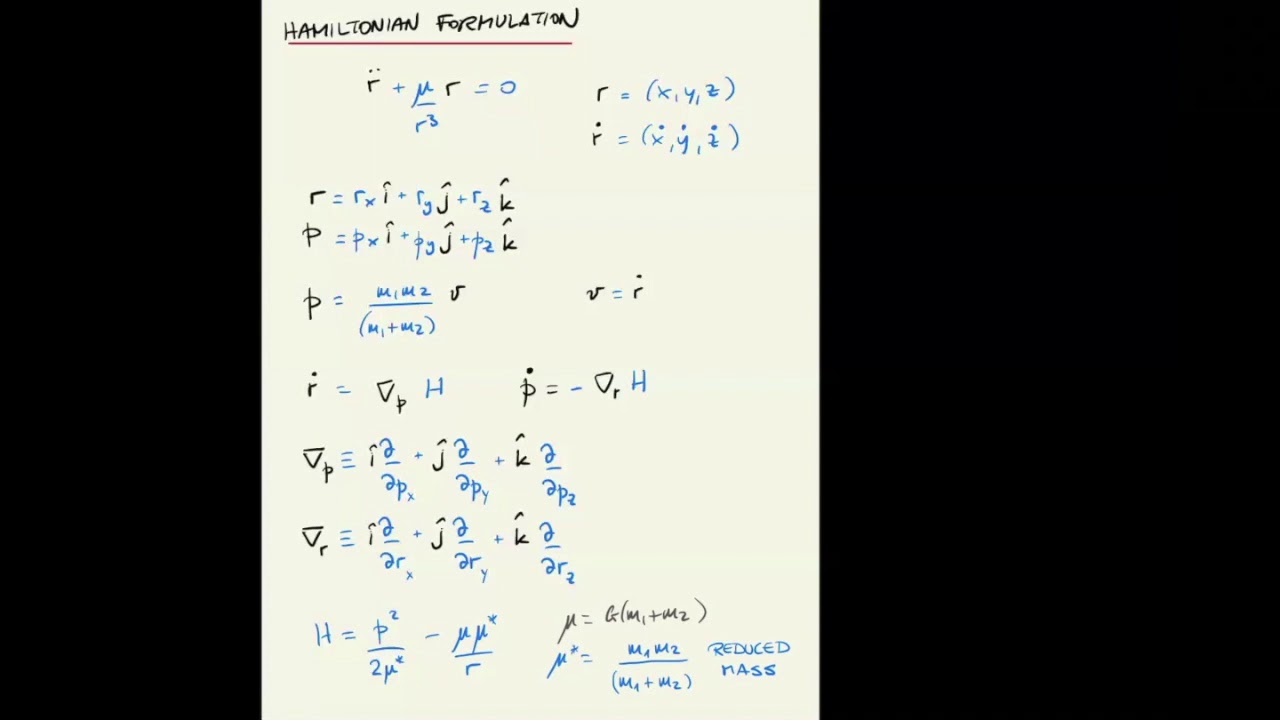 HAMILTONIAN FORMULATION
r̈ + μ/r³ r = 0    r = (x, y, z)
ṙ = (ẋ, ẏ, ż)
r = rₓ î + r_y ĵ + r_z k̂
p = pₓ î + p_y ĵ + p_z k̂
p = m₁m₂/(m₁+m₂) v    v = ṙ
ṙ = ∇_p H    ṗ = - ∇_r H
∇_p ≡ î ∂/∂pₓ + ĵ ∂/∂p_y + k̂ ∂/∂p_z
∇_r ≡ î ∂/∂rₓ + ĵ ∂/∂r_y + k̂ ∂/∂r_z
H = p²/2μ* - μμ*/r    μ = G(m₁+m₂)
μ* = m₁m₂/(m₁+m₂) REDUCED MASS